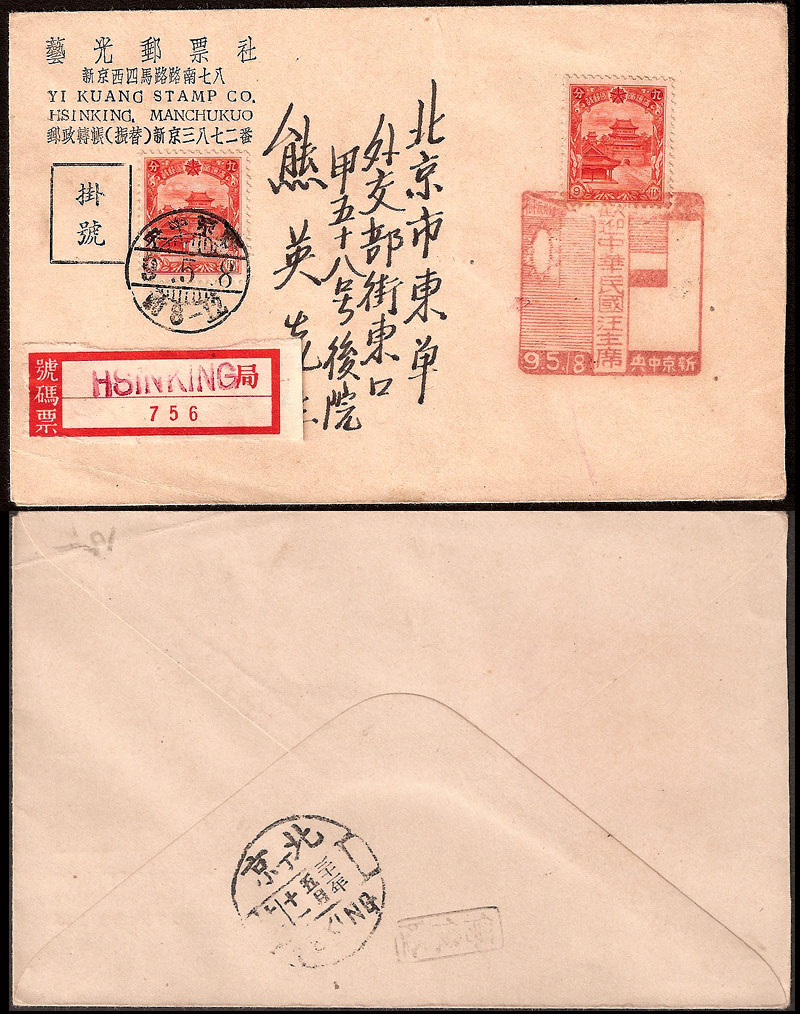 藝光郵票社
新京西四馬路路南七八
YI KUANG STAMP CO.
HSINKING, MANCHUKUO
郵政轉帳(振替)新京三八七二番
掛號
北京市東單
外交部街東口
甲五十八号後院
熊英先
號碼票
HSINKING局
756
九分
9
九分
5.8
8-12
歡迎中華民國汪主席
9.5.8
新京中央
北京